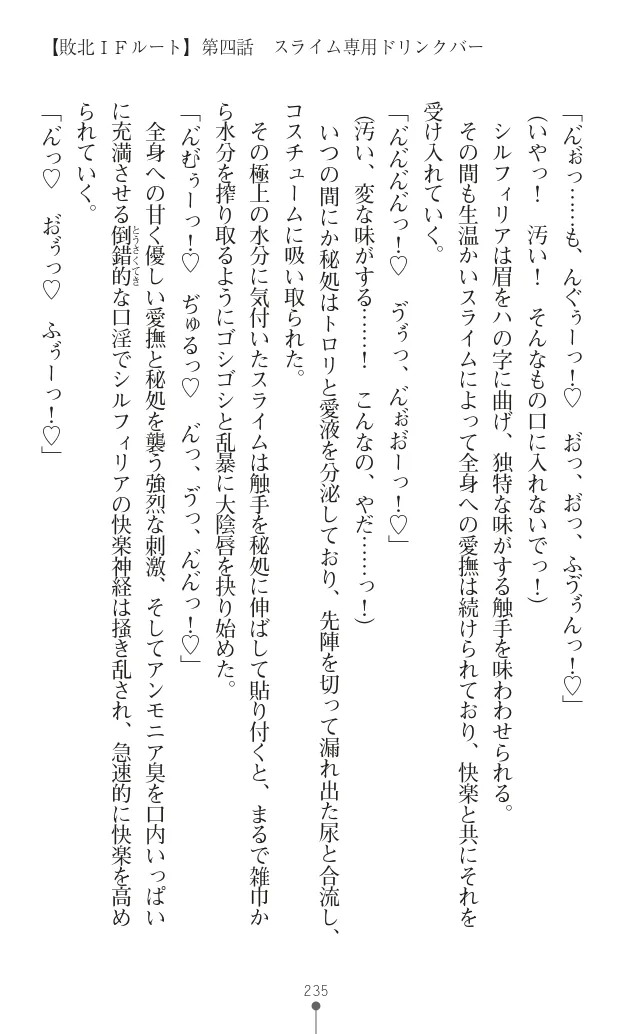 【敗北ＩＦルート】第四話　スライム専用ドリンクバー
「ん゛ぉっ……も、んぐぅーっ！♡　お゛っ、お゛っ、ふゔぅ゛んっ！♡」
（いやっ！　汚い！　そんなもの口に入れないでっ！）
　シルフィリアは眉をハの字に曲げ、独特な味がする触手を味わわせられる。
　その間も生温かいスライムによって全身への愛撫は続けられており、快楽と共にそれを
受け入れていく。
「ん゛ん゛ん゛ん゛っ！♡　ゔぅ゛っ、ん゛ぉお゛ーっ！♡」
（汚い、変な味がする……！　こんなの、やだ……っ！）
　いつの間にか秘処はトロリと愛液を分泌しており、先陣を切って漏れ出た尿と合流し、
コスチュームに吸い取られた。
　その極上の水分に気付いたスライムは触手を秘処に伸ばして貼り付くと、まるで雑巾か
ら水分を搾り取るようにゴシゴシと乱暴に大陰唇を抉り始めた。
「ん゛むぅーっ！♡　ぢゅるっ♡　ん゛っ、ゔっ、ん゛ん゛っ！♡」
　全身への甘く優しい愛撫と秘処を襲う強烈な刺激、そしてアンモニア臭を口内いっぱい
に充満させる倒錯的な口淫でシルフィリアの快楽神経は掻き乱され、急速的に快楽を高め
とうさくてき
られていく。
「ん゛っ♡　お゛ぅ゛っ♡　ふぅ゛ーっ！♡」
235